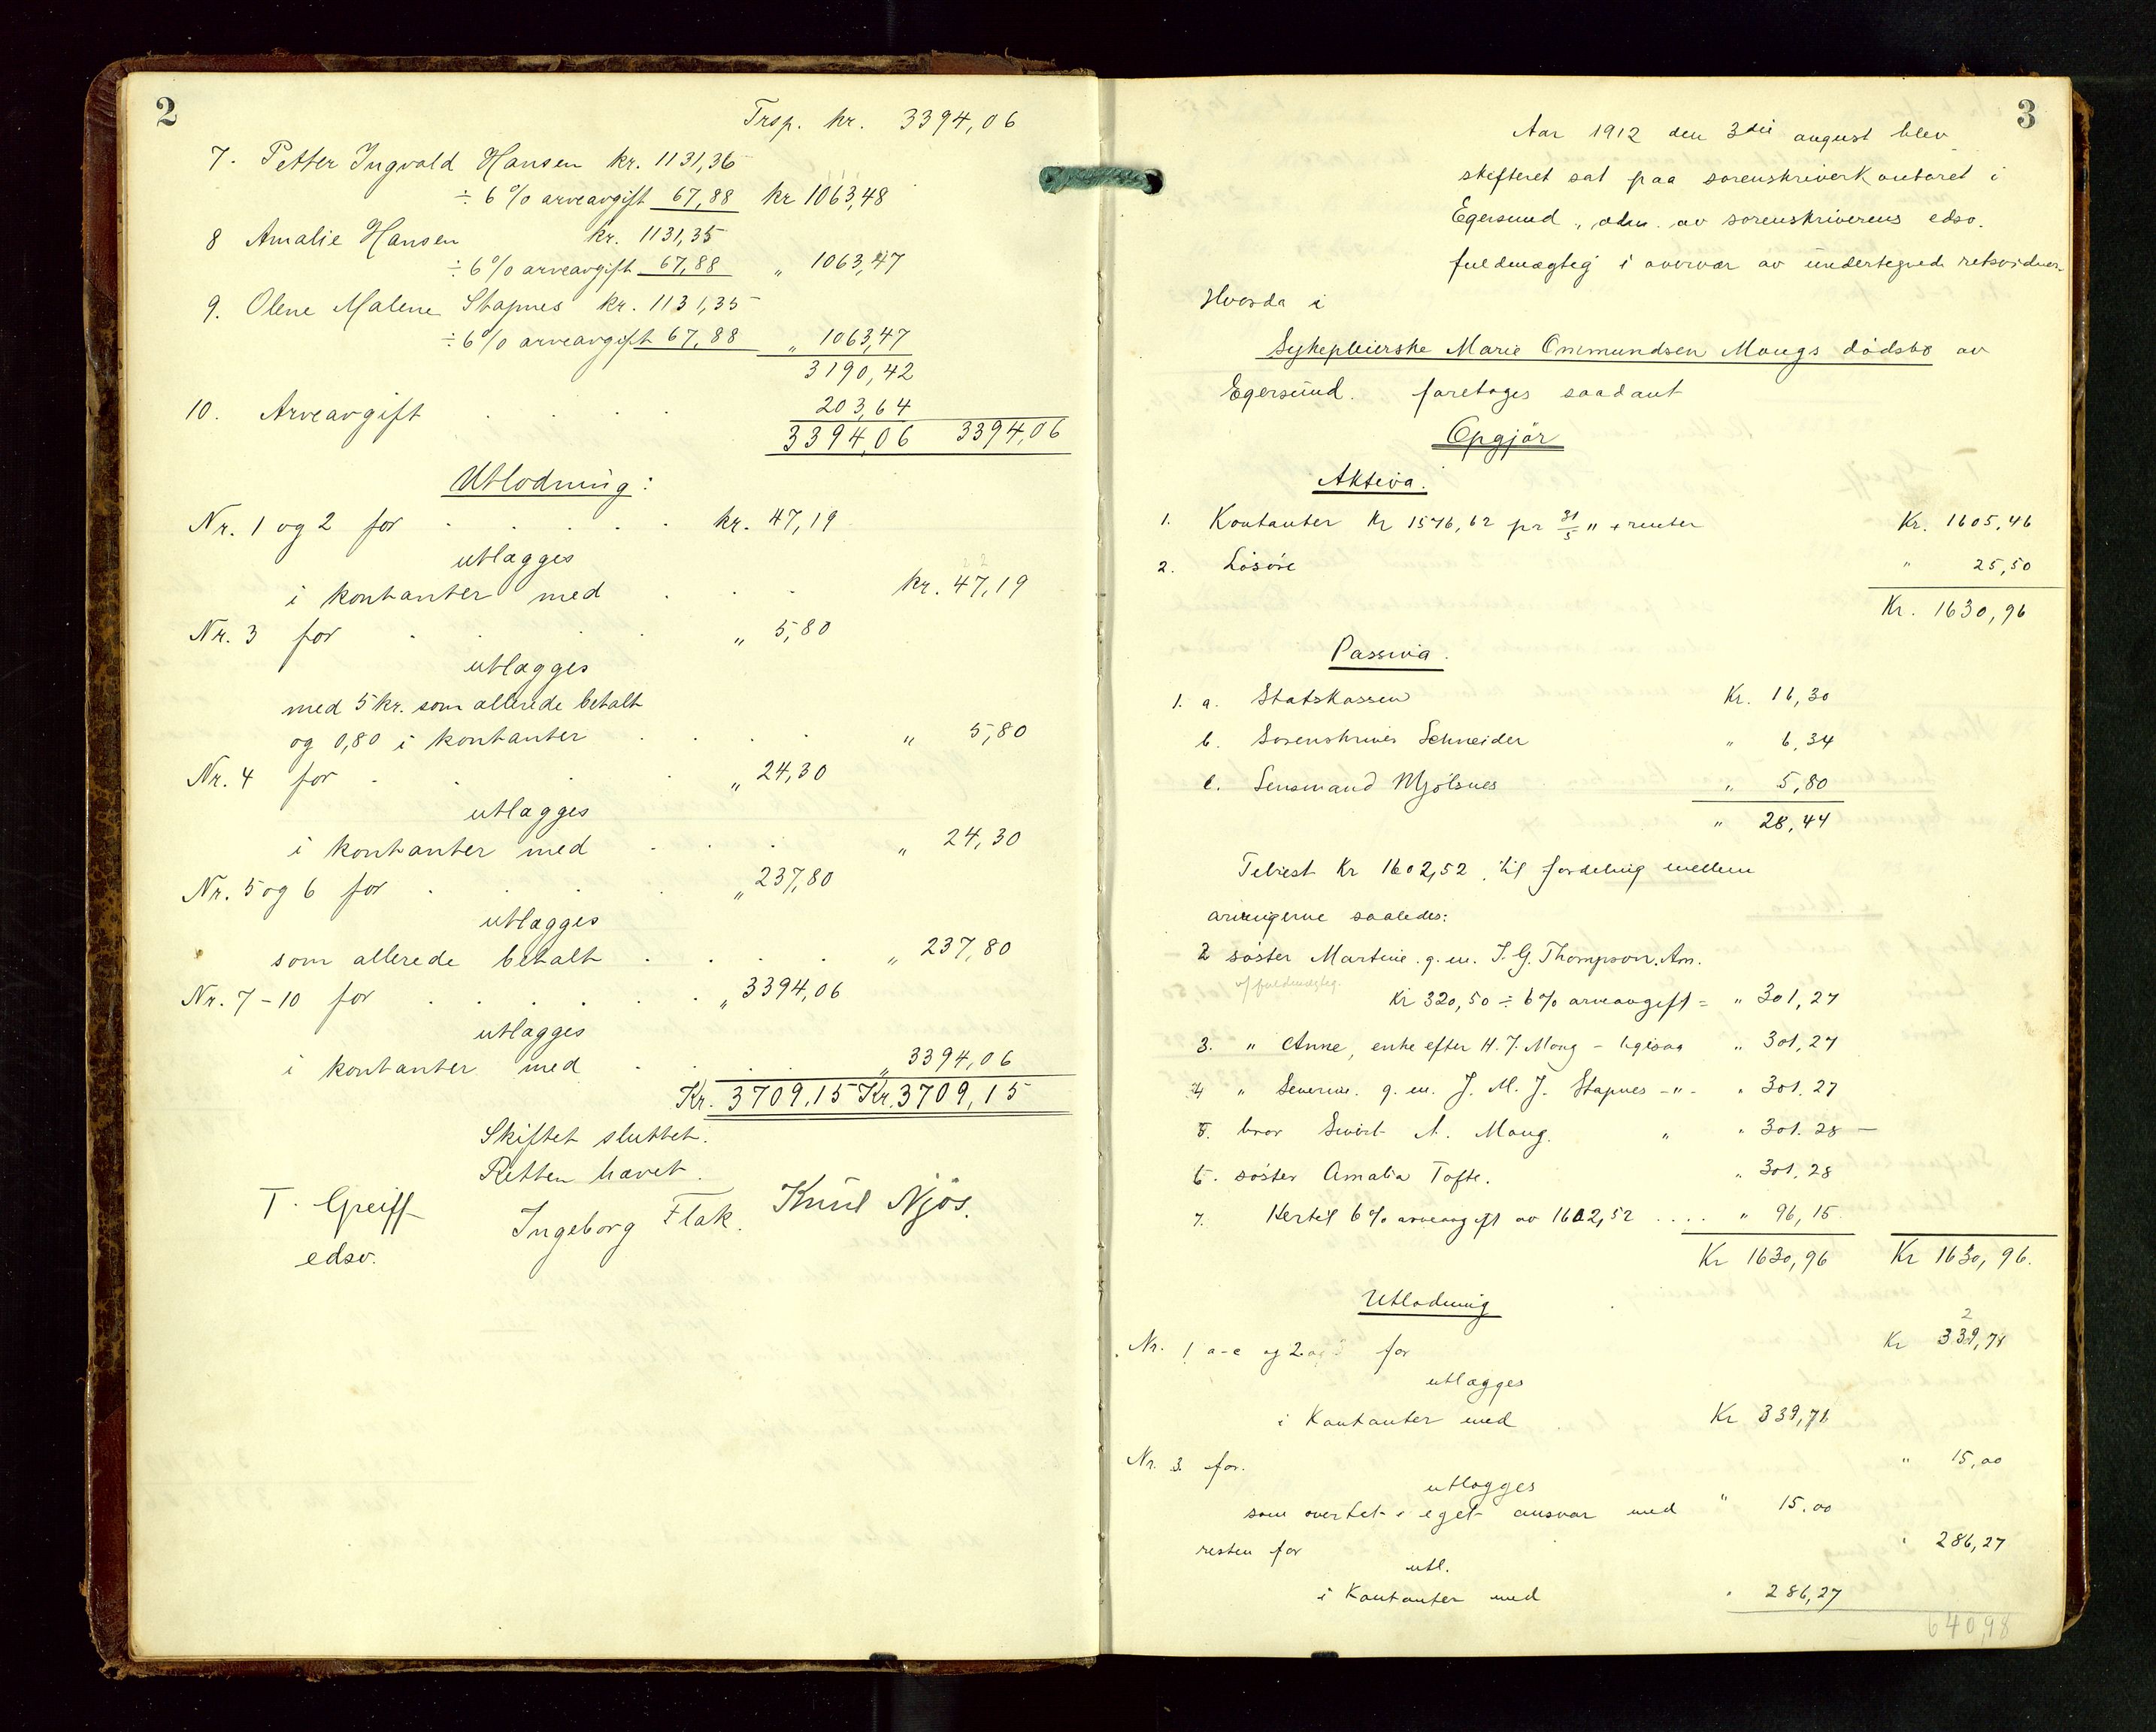 2
Trsp. kr. 3394,06
7. Petter Ingvald Hansen kr. 1131,36
÷ 6 % arveavgift 67,88 kr 1063,48
8 Amalie Hansen kr. 1131,35
÷ 6 % arveavgift 67,88 " 1063,47
9. Olene Malene Stapnes kr. 1131,35
÷ 6 % arveavgift 67,88 " 1063,47
3190,42
10. Arveavgift . . . . 203,64
3394,06 3394,06
Utlodning:
Nr. 1 og 2 for . . . . . kr. 47,19
utlægges
i kontanter med . . . kr. 47,19
Nr. 3 for . . . . " 5,80
utlægges
med 5 kr. som allerede betalt
og 0,80 i kontanter . . . . " 5,80
Nr. 4 for . . . . " 24,30
utlægges
i kontanter med . . . " 24,30
Nr. 5 og 6 for . . . . " 237,80
utlægges
som allerede betalt . . . . " 237,80
Nr. 7-10 for . . . . . " 3394,06
utlægges
i kontanter med . . . . " 3394,06
Kr. 3709,15 Kr. 3709,15
Skiftet sluttet.
Retten hævet.
T. Greiff Ingeborg Flak. Knut Njös.
edsv.
3
Aar 1912 den 3die august blev
skifteret sat paa sorenskriverkontoret i
Egersund, adm. av sorenskriverens edsv.
fuldmægtig i overvær av undertegnede retsvidner.
Hvorda i
Sykepleierske Marie Ommundsen Mongs dödsbo av
Egersund. foretoges saadant
Opgjör
Aktiva.
1. Kontanter Kr 1576,62 pr 31/5 " + renter Kr. 1605,46
2. Lösöre " 25,50
Kr. 1630,96
Passiva.
1. a. Statskassen Kr. 16,30
b. Sorenskriver Schneider " 6,34
c. Lensmand Mjölsnes " 5,80
" 28,44
Tilrest Kr 1602,52 til fordeling mellem
arvingerne saaledes:
2 söster Martine g.m. T. G. Thompson. Am.
v/ fuldmægtig.
Kr 320,50 ÷ 6 % arveavgift = " 301,27
3. " Anne, enke efter H. J. Mong - ligesaa " 301,27
4 " Severine g.m. J. M. J. Stapnes -"- " 301.27
5. bror Sivert A. Mong. " " 301.28 —
6. söster Amalia Tofte. " 301,28
7. Hertil 6 % arveavgift av 1602,52 .... " 96,15
Kr 1630,96 Kr 1630,96.
Utlodning
2
Nr. 1 a-c og 2 for Kr 339,71
utlægges
i Kontanter med Kr 339,71
Nr. 3 for. " 15,00
utlægges
som overtat i eget ansvar med " 15.00
resten for " 286,27
utl.
i Kontanter med " 286,27
640,98